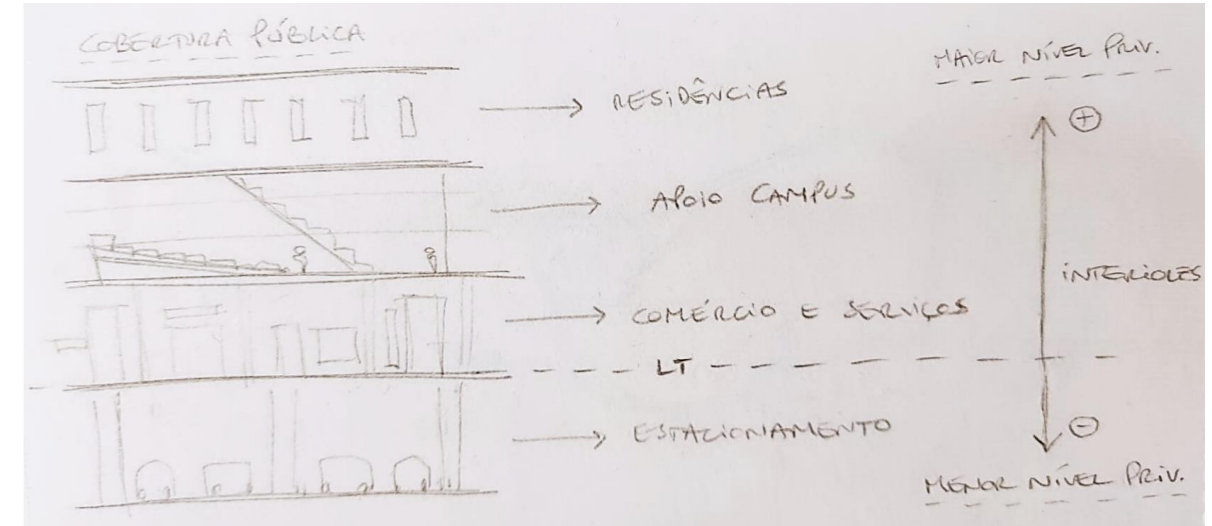 COBERTURA PÚBLICA
MAIOR NÍVEL PRIV.
RESIDÊNCIAS
+
APOIO CAMPUS
INTERIORES
COMÉRCIO E SERVIÇOS
LT
ESTACIONAMENTO
-
MENOR NÍVEL PRIV.